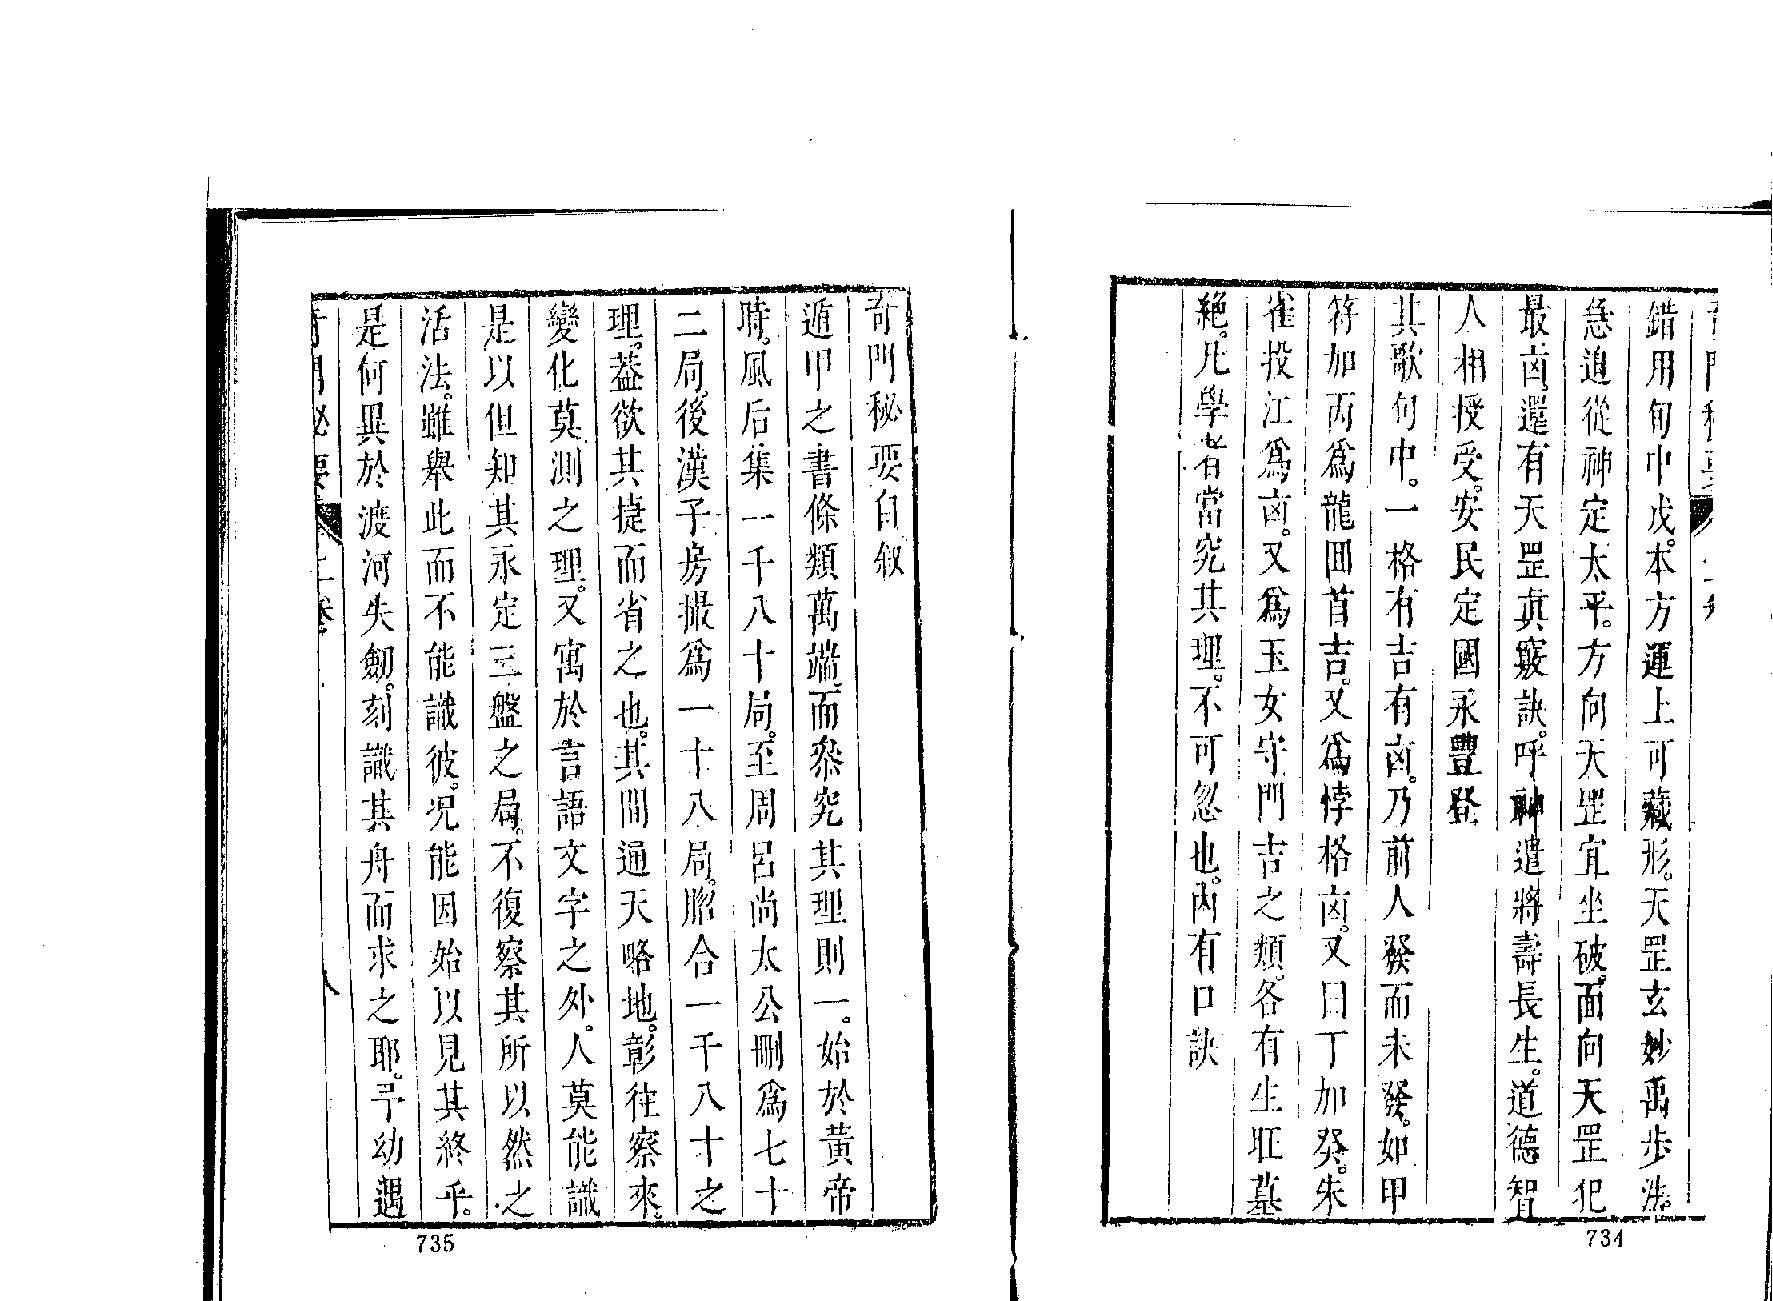 錯用旬中戌。本方運上可藏形。天罡玄妙禹步法。
急迫從神定太平。方向天罡宜坐破。面向天罡犯
最凶。還有天罡眞竅訣。呼神遣將壽長生。道德智
人相授受。安民定國永豐登
其歌句中。一格有吉有凶。乃前人發而未發。如甲
符加丙爲龍回首吉。又爲悖格凶。又曰丁加癸。朱
雀投江爲凶。又爲玉女守門吉之類。各有生旺墓
絶。凡學者當究其理。不可忽也。內有口訣
734
奇門秘要自叙
遁甲之書條類萬端。而叅究其理則一。始於黃帝
時。風后集一千八十局。至周呂尚太公刪爲七十
二局。後漢子房撮爲一十八局。脗合一千八十之
理。葢欲其捷而省之也。其間通天略地。彰往察來。
變化莫測之理。又寓於言語文字之外。人莫能識
是以但知其永定三盤之局。不復察其所以然之
活法。雖舉此而不能識彼。况能因始以見其終乎。
是何異於渡河失劒。刻識其舟而求之耶。予幼遇
奇門秘要 上卷 八
735